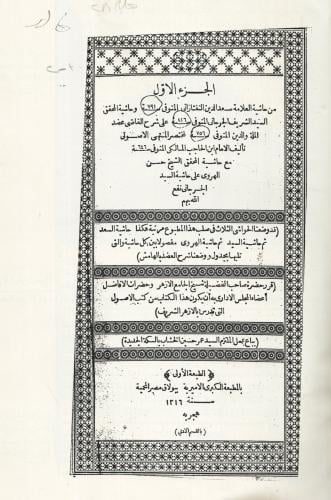 الجزء الاول
من حاشية العلامة سعد الدين التفتازانى المتوفى سنة ٧٩١ وحاشية المحقق
السيد الشريف الجرجانى المتوفى سنة ٨١٦ على شرح القاضى عضد
الملة والدين المتوفى سنة ٧٥٦ لمختصر المنتهى الاصولى
تأليف الامام ابن الحاجب المالكى المتوفى سنة ٦٤٦
مع حاشية المحقق الشيخ حسن
الهروى على حاشية السيد
الجرجانى نفع
الله بهم
(قد وضعنا الحواشى الثلاث فى صلب هذا المطبوع مرتبة هكذا حاشية السعد
ثم حاشية السيد ثم حاشية الهروى مفصولا بين كل حاشية والتى
تليها بجدول ووضعنا شرح العضد بالهامش)
(قرر حضرة صاحب الفضيلة شيخ الجامع الازهر وحضرات الافاضل
أعضاء مجلس الادارة به أن يكون هذا الكتاب من كتب الاصول
التى تدرس بالازهر الشريف)
(يباع بمحل الملتزم السيد عمر حسين الخشاب بالسكة الجديدة)
(الطبعة الأولى)
بالمطبعة الكبرى الاميرية ببولاق مصر المحمية
سنة ١٣١٦
هجريه
(بالقسم الادبى)